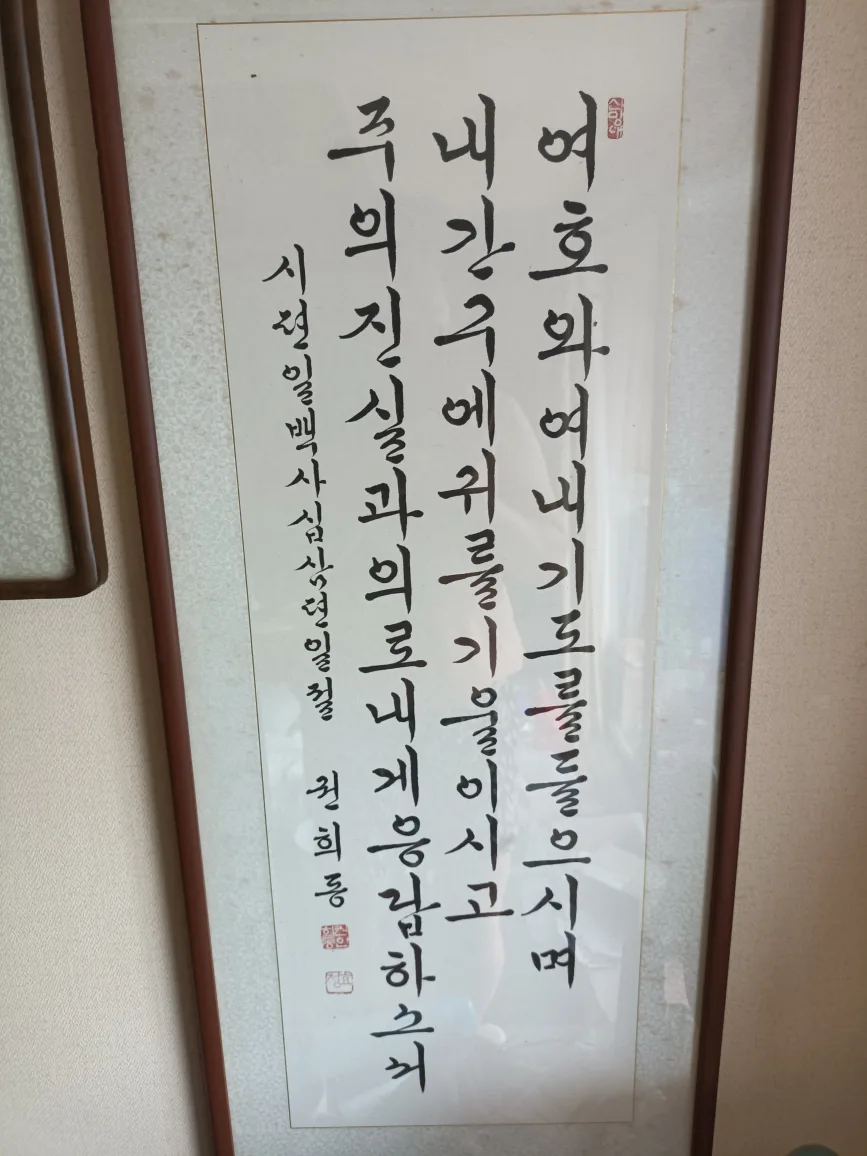 여호와여내기도를들으시며
내간구에귀를기울이시고
주의진실과의로내게응답하소서
시편일백사십삼편일절 권희동